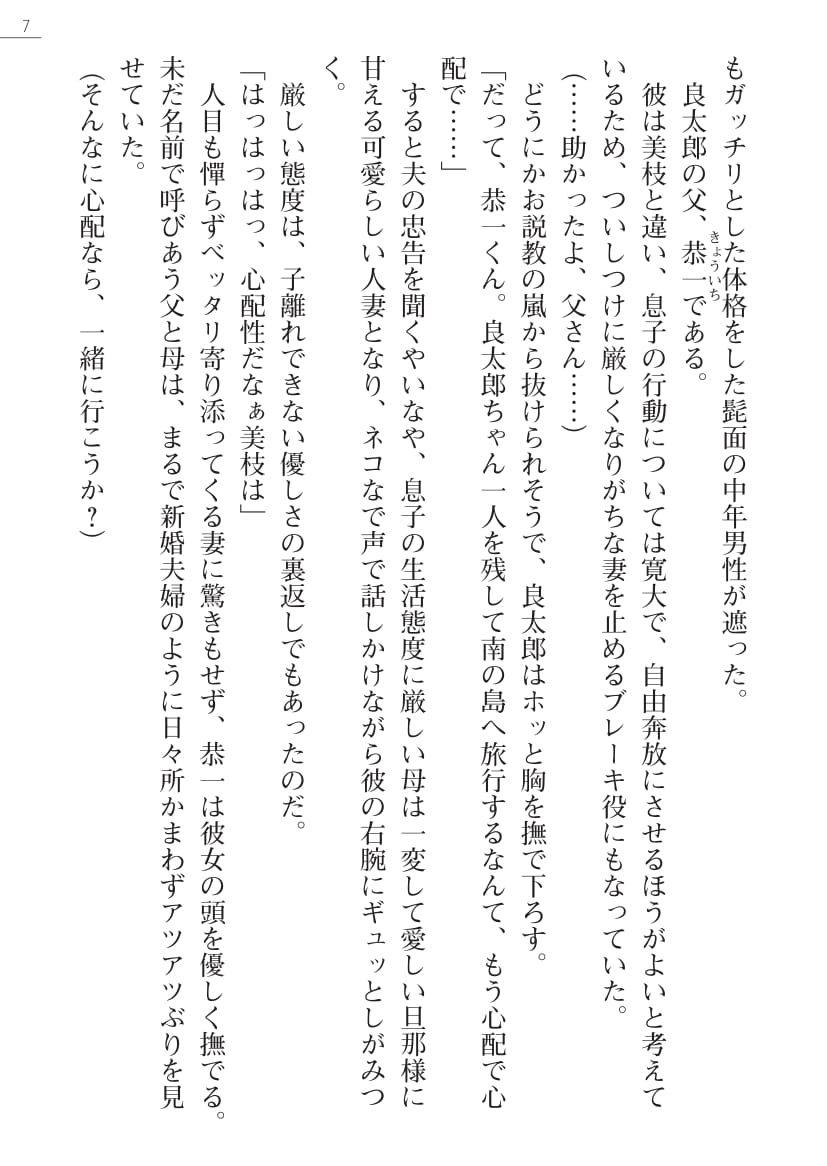 7
もガッチリとした体格をした髭面の中年男性が遮った。
良太郎の父、恭一である。
きょういち
彼は美枝と違い、息子の行動については寛大で、自由奔放にさせるほうがよいと考えて
いるため、ついしつけに厳しくなりがちな妻を止めるブレーキ役にもなっていた。
(……助かったよ、父さん……)
どうにかお説教の嵐から抜けられそうで、良太郎はホッと胸を撫で下ろす。
「だって、恭一くん。良太郎ちゃん一人を残して南の島へ旅行するなんて、もう心配で心
配で……」
すると夫の忠告を聞くやいなや、息子の生活態度に厳しい母は一変して愛しい旦那様に
甘える可愛らしい人妻となり、ネコなで声で話しかけながら彼の右腕にギュッとしがみつ
く。
厳しい態度は、子離れできない優しさの裏返しでもあったのだ。
「はっはっはっ、心配性だなぁ美枝は」
人目も憚らずベッタリ寄り添ってくる妻に驚きもせず、恭一は彼女の頭を優しく撫でる。
未だ名前で呼びあう父と母は、まるで新婚夫婦のように日々所かまわずアツアツぶりを見
せていた。
(そんなに心配なら、一緒に行こうか?)